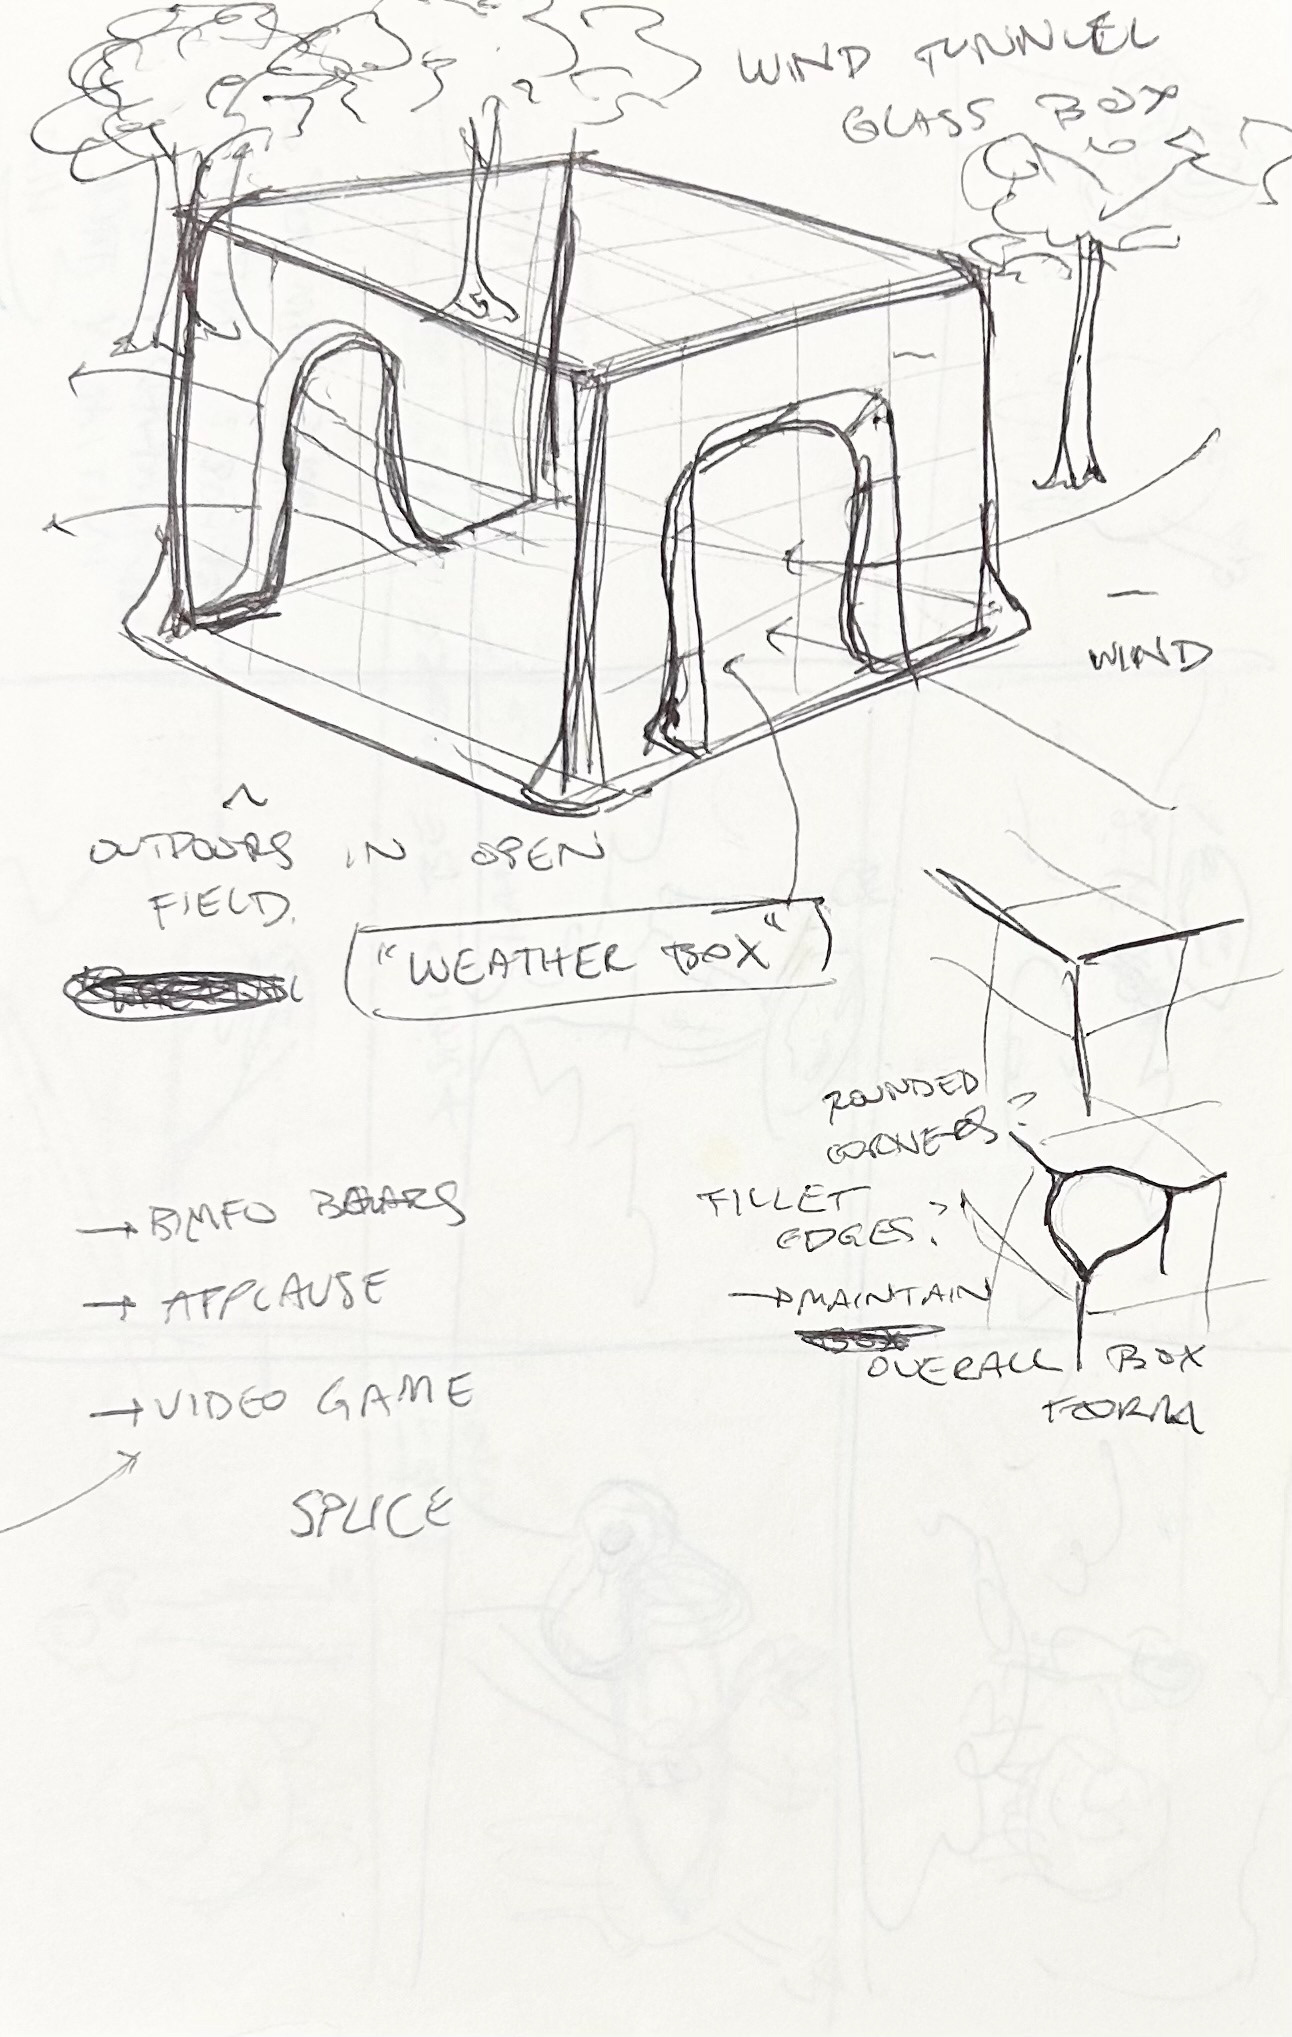 WIND TUNNEL
GLASS BOX
WIND
OUTDOORS IN OPEN
FIELD.
"WEATHER BOX"
ROUNDED
CORNERS?
FILLET
EDGES?
→ MAINTAIN
OVERALL BOX
FORM
→
→ APPLAUSE
→ VIDEO GAME
SPLICE